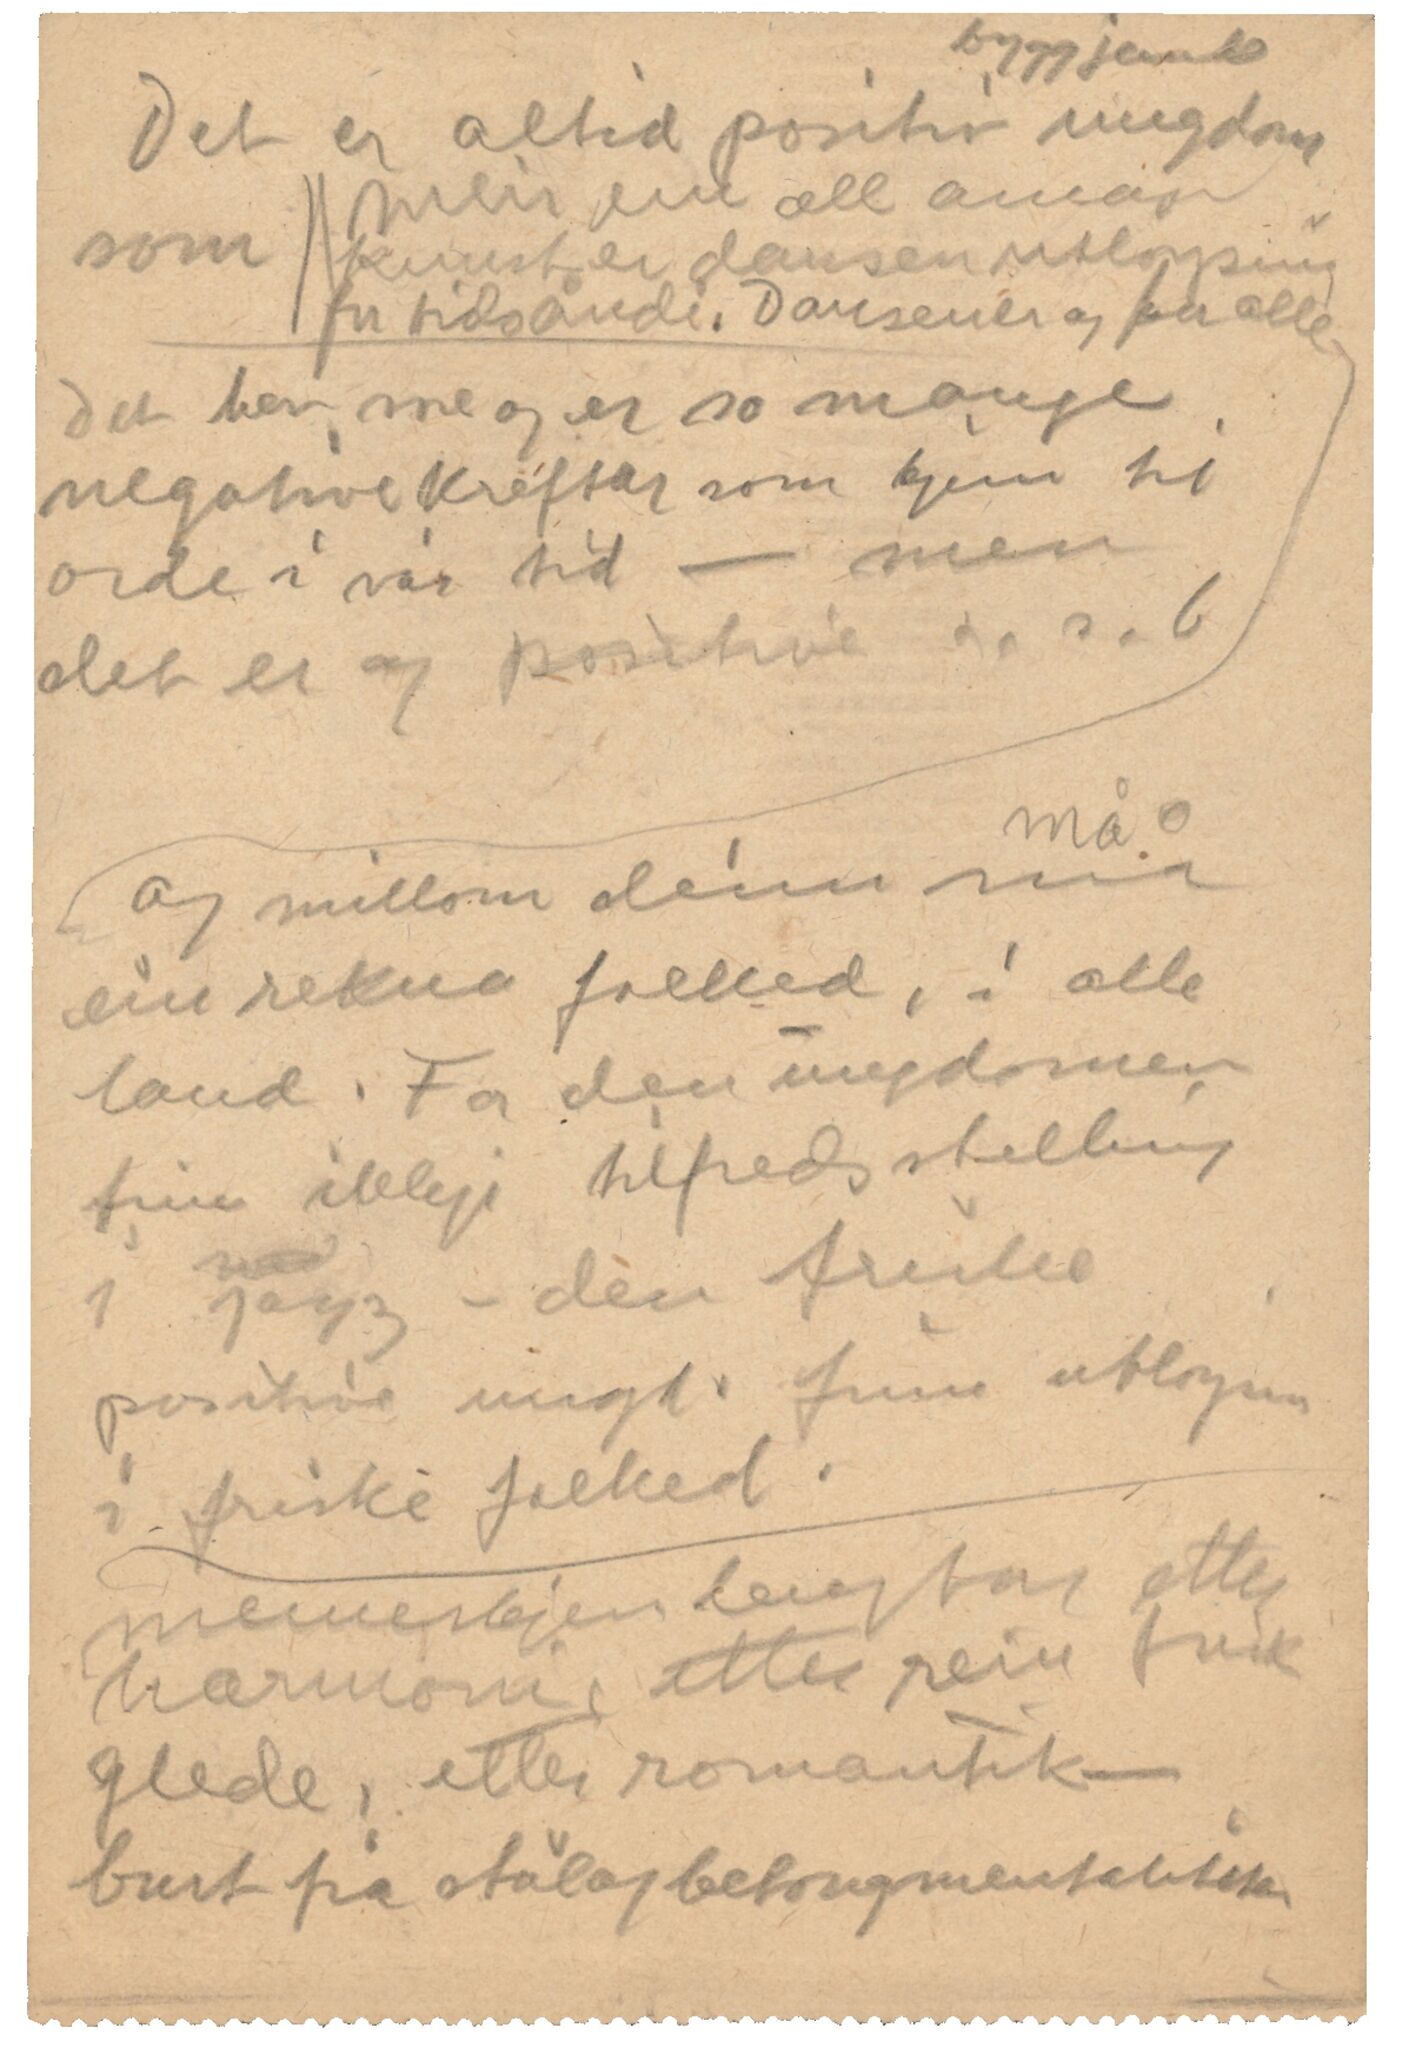 byggjande
Det er altid positiv ungdom
som
meir enn all annan
kunst er dansen utløysing
for tidsånde. Dansen er og for alle
Det har me og er so mange
negative krefter som kjem til
orde i vår tid — men
det er og positive o. s. b
må
Og millom deim må
ein rekna folked, i alle
land. For den ungdomen
finn ikkje tilfredsstelling
i jazz - den friske
positive ungd. finn utløysn
i friske folked.
Menneskjen lengtar etter
harmoni, etter rein frisk
glede, etter romantik —
burt frå stål og betongmentaliteten